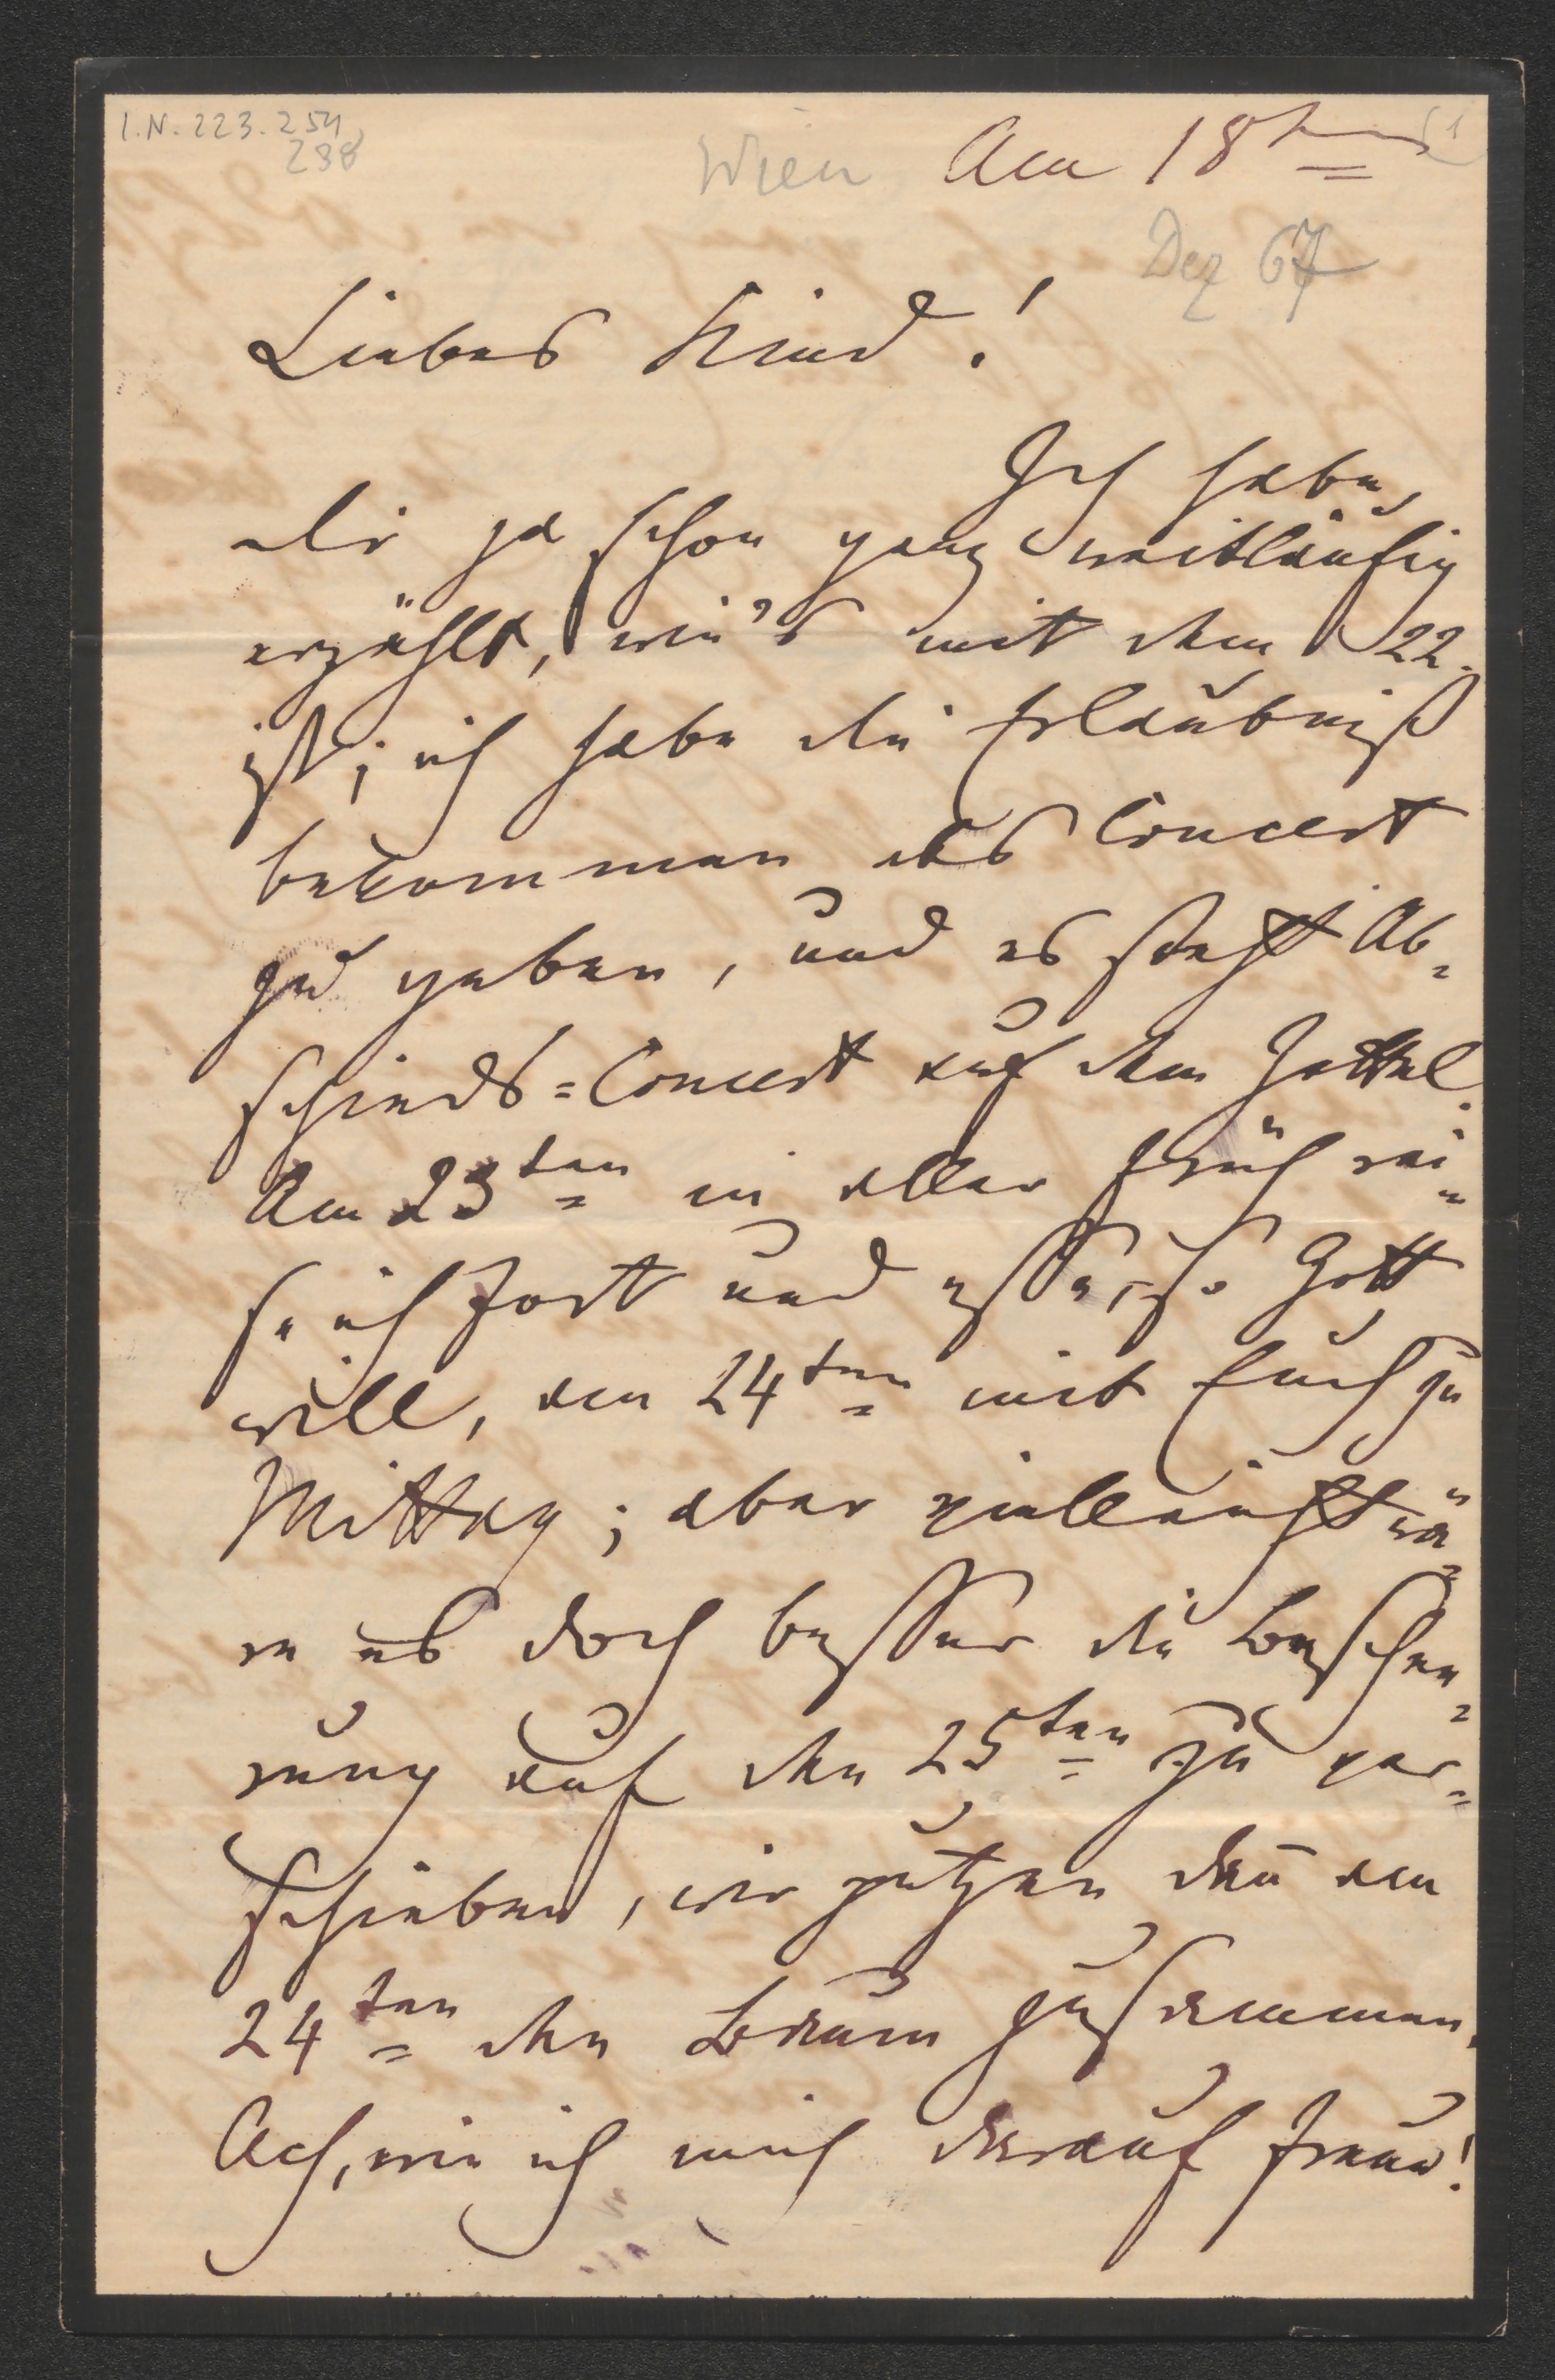 I.N. 223.254
238
Wien Am 18ten
Dez 67
Liebes Kind!
Ich habe
dir ja schon ganz weitläufig
erzählt, wie's mit dem 22.
ist; ich habe die Erlaubniß
bekommen das Concert
zu geben, und es steht Ab=
schieds=Concert auf dem Zettel.
Am 23ten in aller Früh rei=
se ich fort und esse, so Gott
will, am 24ten mit Euch zu
Mittag; aber vielleicht wä=
re es doch besser die Beschee=
rung auf den 25ten zu ver=
schieben, wir putzen dan̄ am
24ten den Baum zusammen.
Ach, wie ich mich darauf freue!